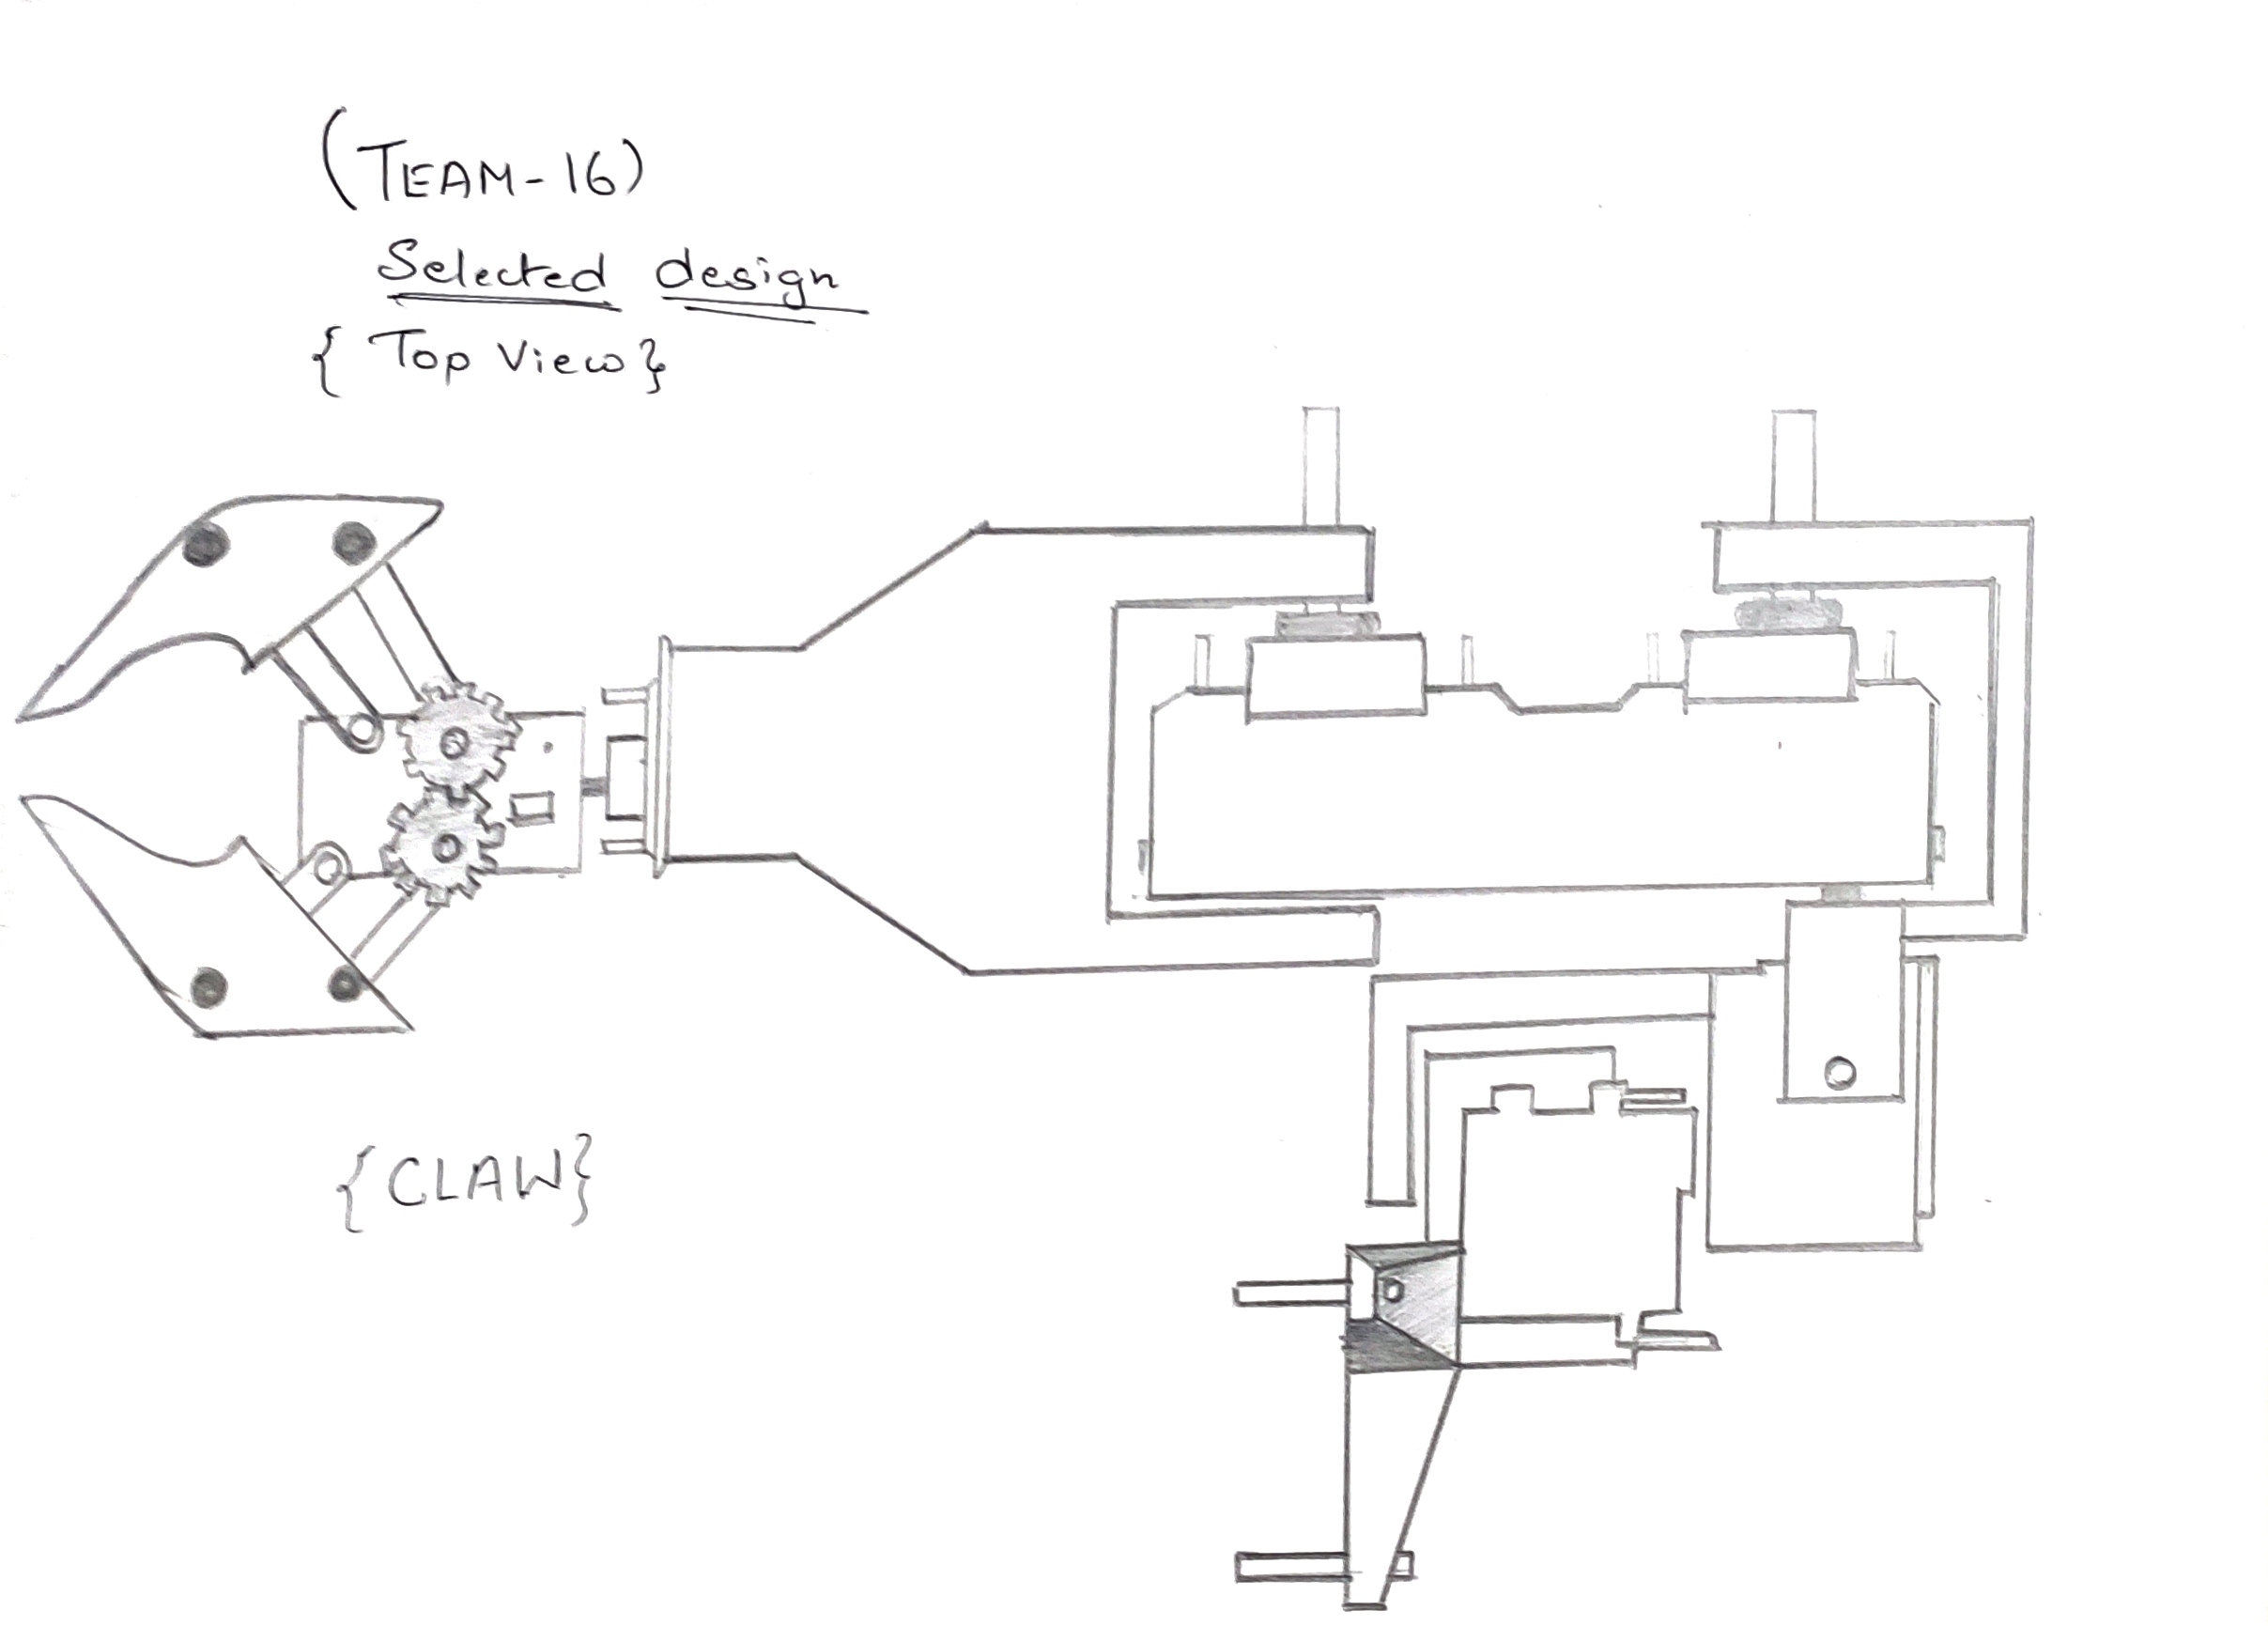 (TEAM-16)
Selected design
{ Top View}
{CLAW}